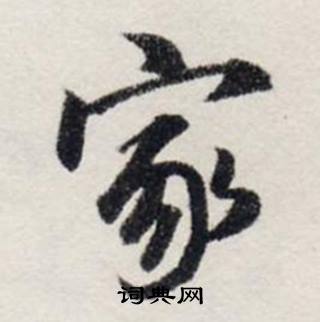 家
词典网